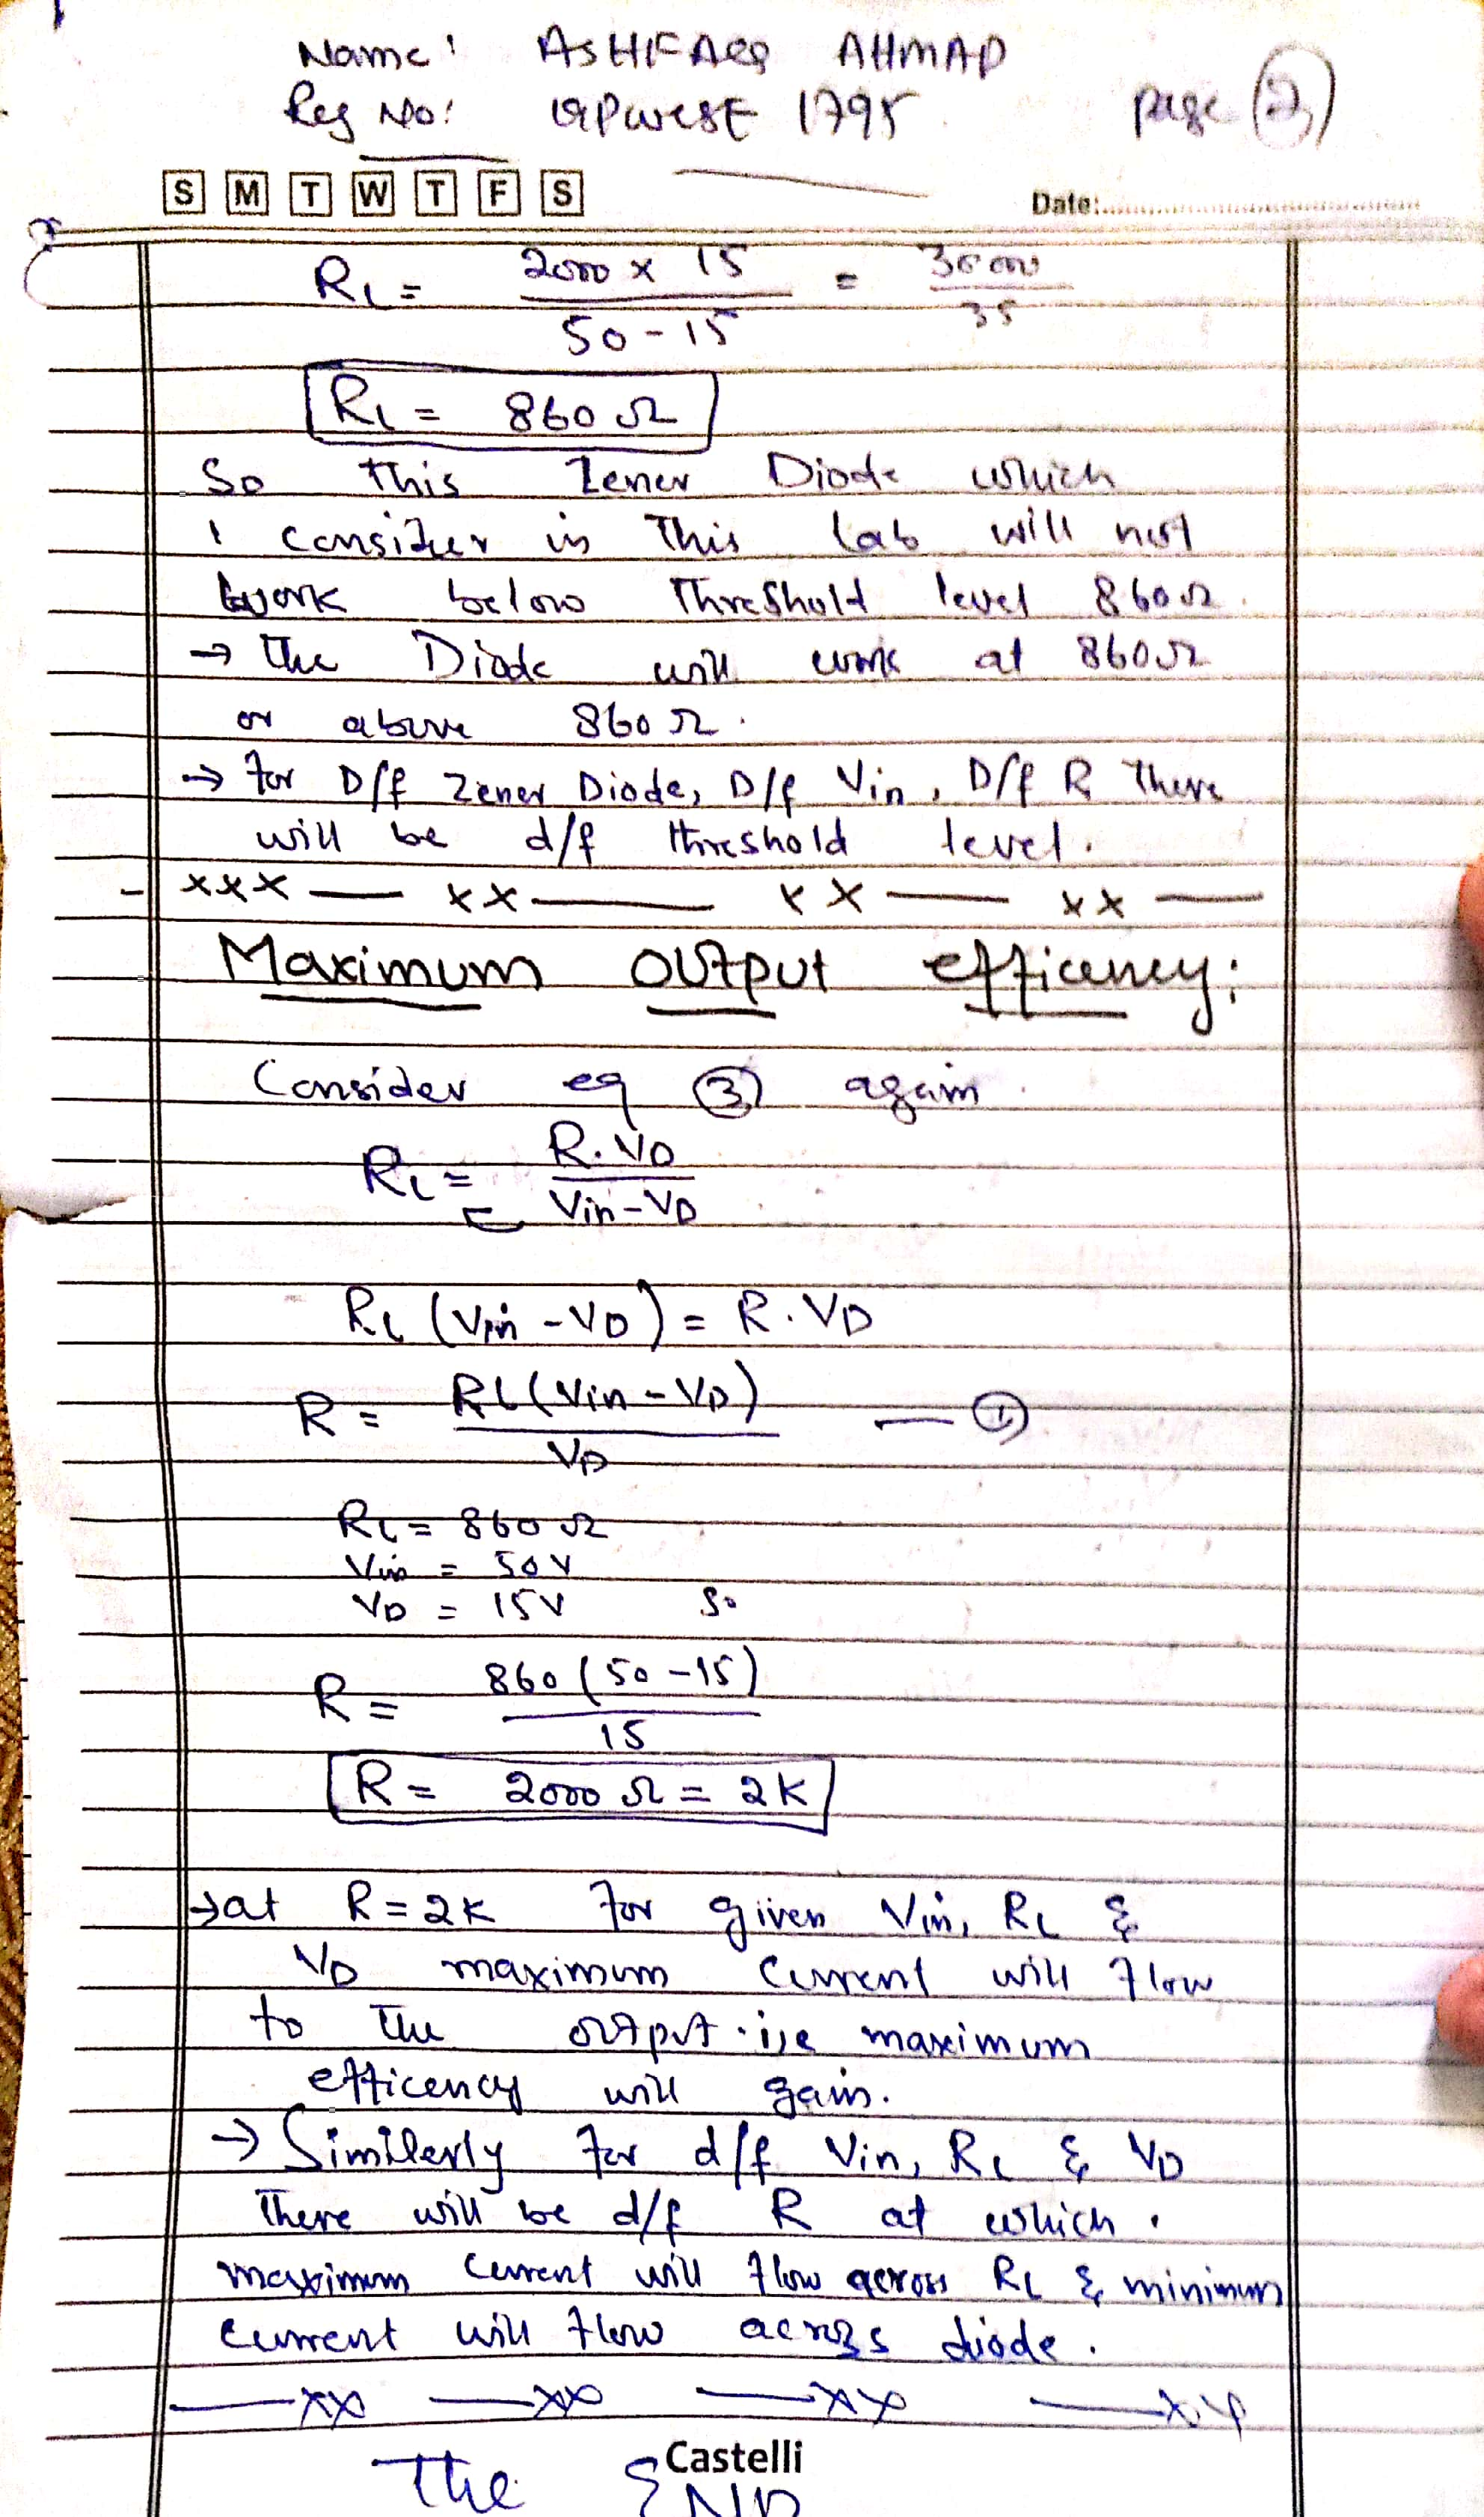 Name: ASHFAQ AHMAD
Reg No: 19PWCSE 1795 page (2)
S M T W T F S
Date:
RL = 2000 x 15 / 50 - 15 = 30000 / 35
RL = 860 Ω
So this Zener Diode which
I consider in This lab will not
work below Threshold level 860Ω.
→ The Diode will work at 860Ω
or above 860Ω.
→ For D/f Zener Diode, D/f Vin, D/f R There
will be d/f threshold level.
- xxx — xx — xx — xx —
Maximum output efficency:
Consider eq (3) again.
RL = R.VD / Vin - VD
RL (Vin - VD) = R.VD
R = RL (Vin - VD) / VD —
RL = 860 Ω
Vin = 50V
VD = 15V So
R = 860 (50 - 15) / 15
R = 2000 Ω = 2K
→ at R = 2K For given Vin, RL &
VD maximum Current will flow
to The output. i,e maximum
efficency will gain.
→ Similerly For d/f Vin, RL & VD
There will be d/f R at which.
maximum Current will flow across RL & minimum
current will flow across diode.
— xx — xx — xx — xx
Castelli
The END